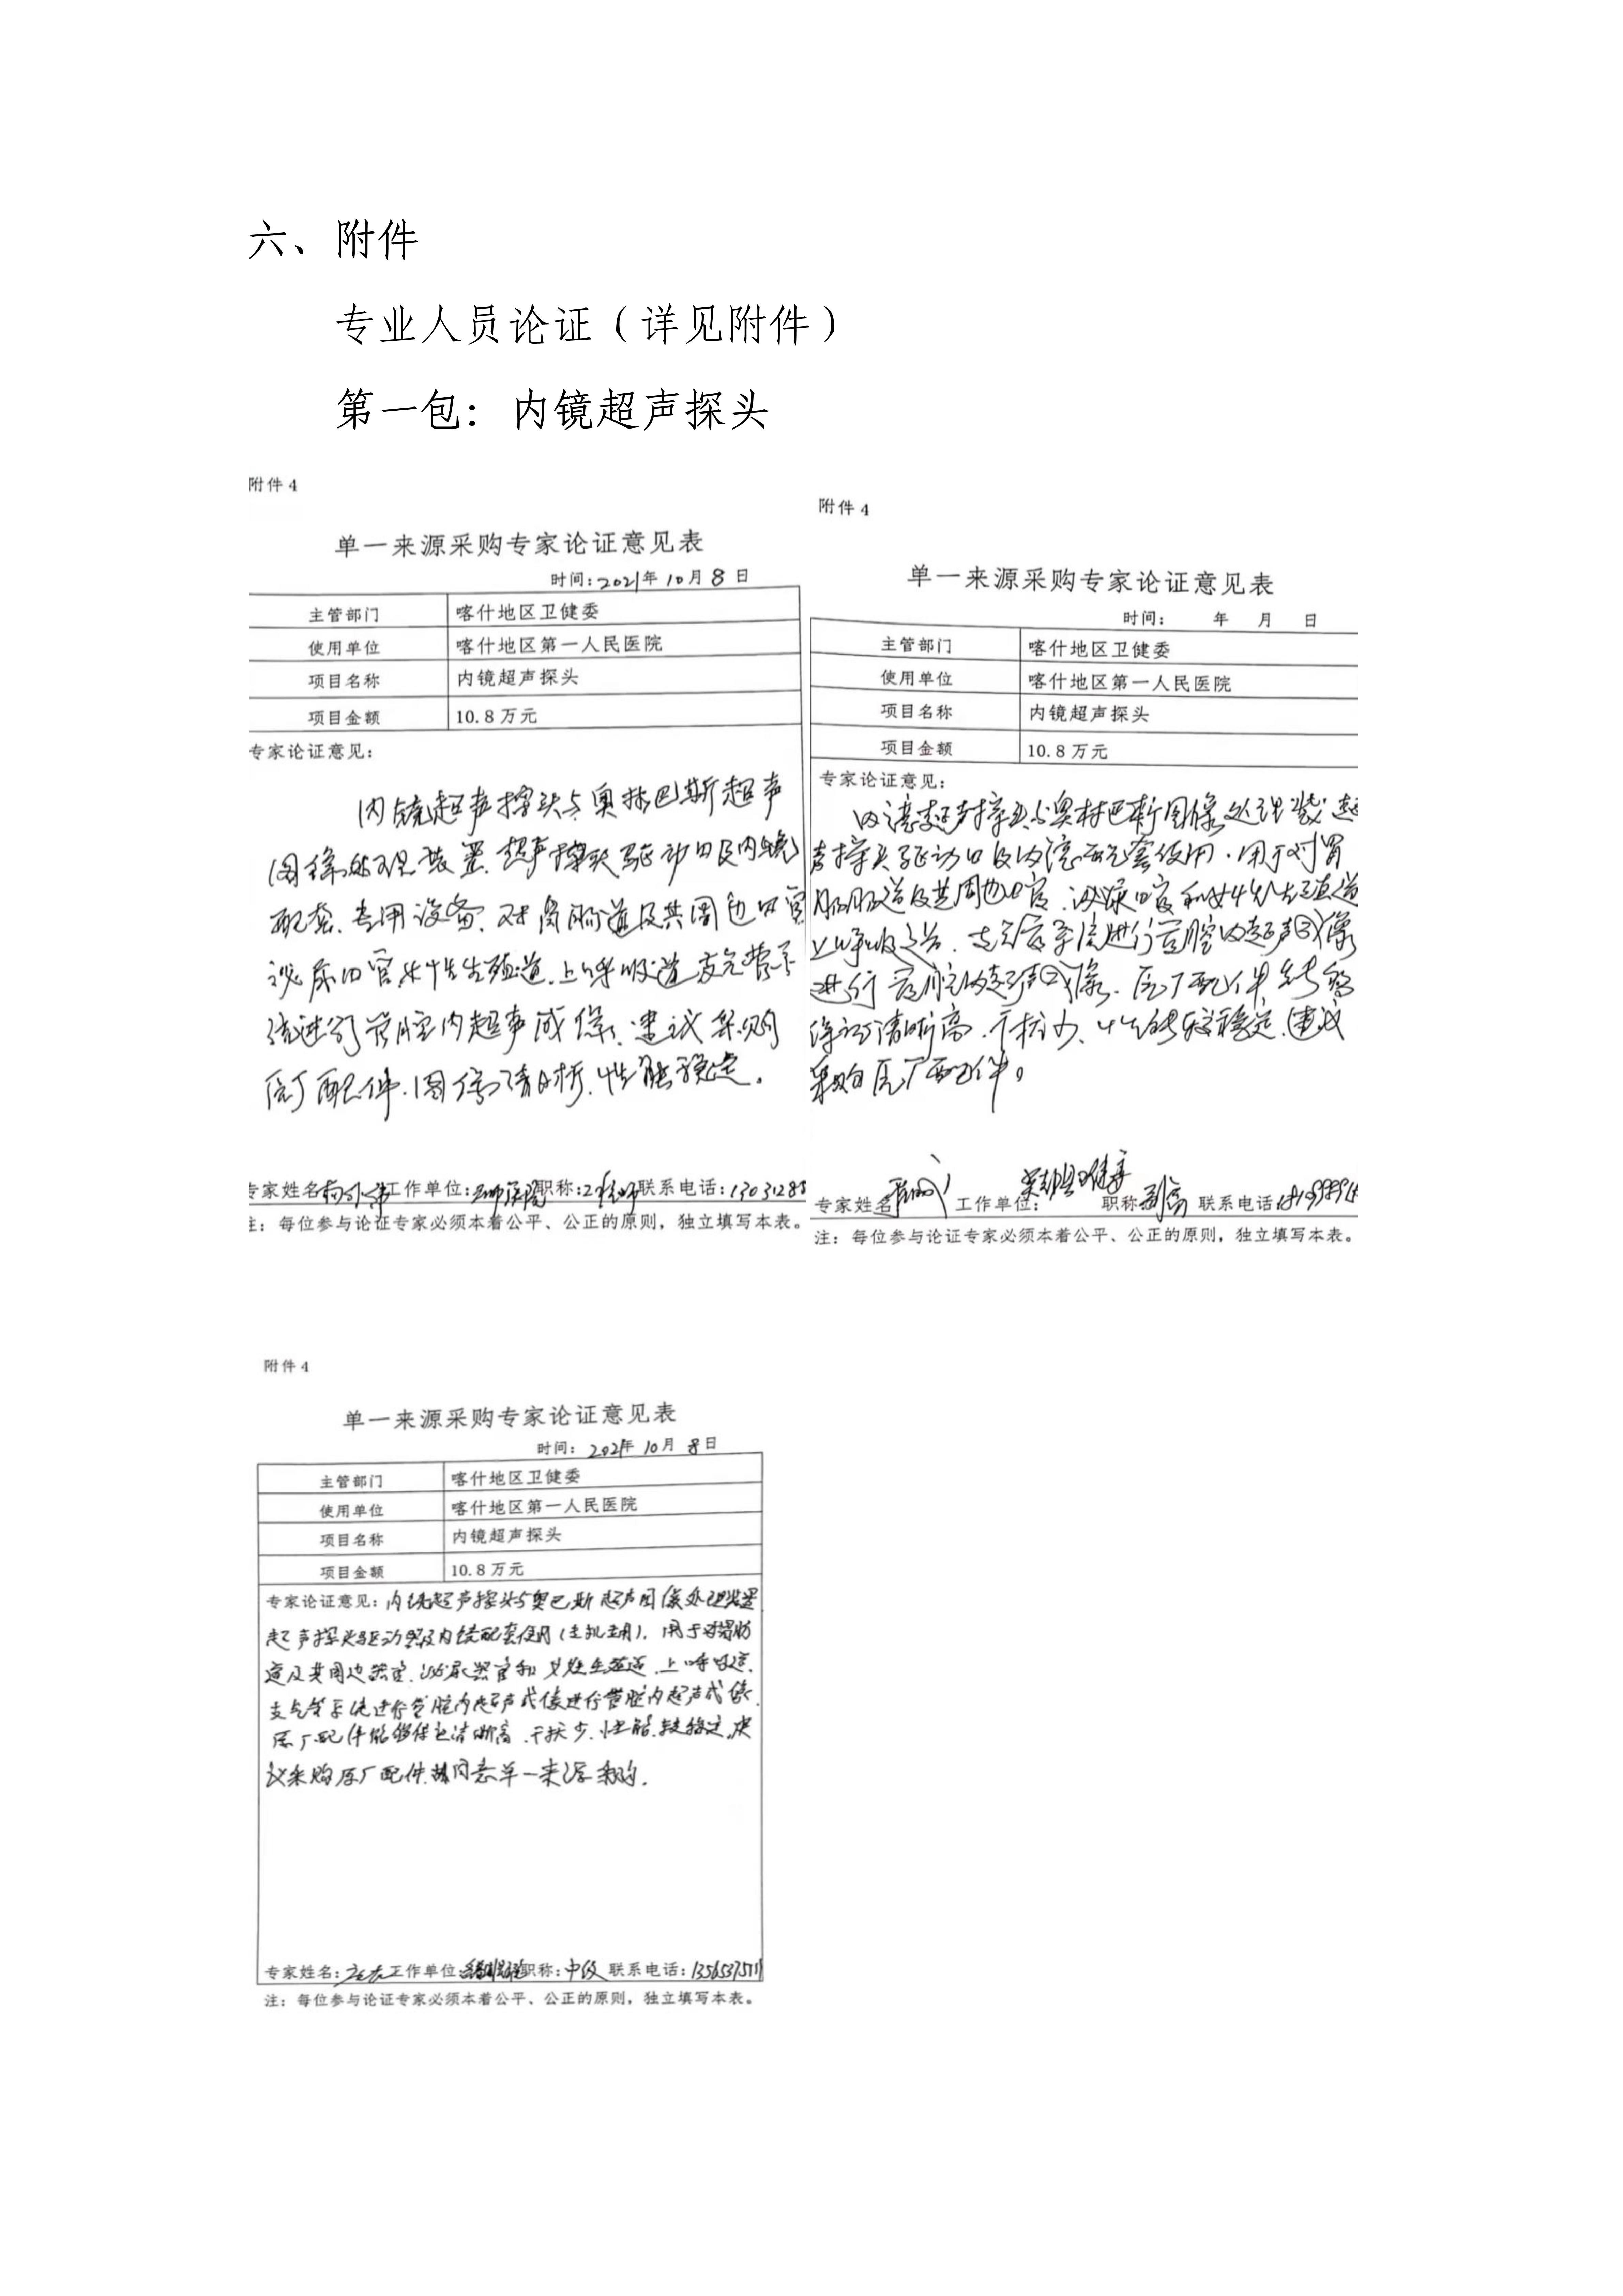 六、附件
专业人员论证（详见附件）
第一包：内镜超声探头
附件 4
单一来源采购专家论证意见表
时间：2021年 10 月 8 日
主管部门 喀什地区卫健委
使用单位 喀什地区第一人民医院
项目名称 内镜超声探头
项目金额 10.8 万元
专家论证意见：
内镜超声探头与奥林巴斯超声
图像处理装置、超声探头驱动口及内镜
配套、专用设备、对胃肠道及其周边口官
泌尿口官、女性生殖道、上呼吸道支气管系
统进行管腔内超声成像，建议采购
原厂配件、图像清晰、性能稳定。
专家姓名 工作单位： 职称：工程师 联系电话：1303128
注：每位参与论证专家必须本着公平、公正的原则，独立填写本表。
附件 4
单一来源采购专家论证意见表
时间： 年 月 日
主管部门 喀什地区卫健委
使用单位 喀什地区第一人民医院
项目名称 内镜超声探头
项目金额 10.8 万元
专家论证意见：
内镜超声探头与奥林巴斯图像处理装、超
声探头驱动口及内镜配套使用，用于对胃
肠道及其周边口官、泌尿口官和女性生殖道
上呼吸道、支气管系统进行管腔内超声成像
进行管腔内超声成像、原厂配件能够
保证清晰高、干扰少、性能较稳定，建议
采购原厂配件。
专家姓名 工作单位： 职称 副高 联系电话
注：每位参与论证专家必须本着公平、公正的原则，独立填写本表。
附件 4
单一来源采购专家论证意见表
时间：2021年 10 月 8 日
主管部门 喀什地区卫健委
使用单位 喀什地区第一人民医院
项目名称 内镜超声探头
项目金额 10.8 万元
专家论证意见：内镜超声探头与奥巴斯超声图像处理装置
超声探头驱动器及内镜配套使用（专机专用），用于对胃肠
道及其周边器官、泌尿器官和女性生殖道、上呼吸道、
支气管系统进行管腔内超声成像进行管腔内超声成像、
原厂配件能够保证清晰高、干扰少、性能较稳定，建
议采购原厂配件，同意单一来源采购。
专家姓名： 工作单位 职称：中级 联系电话：1356537571
注：每位参与论证专家必须本着公平、公正的原则，独立填写本表。